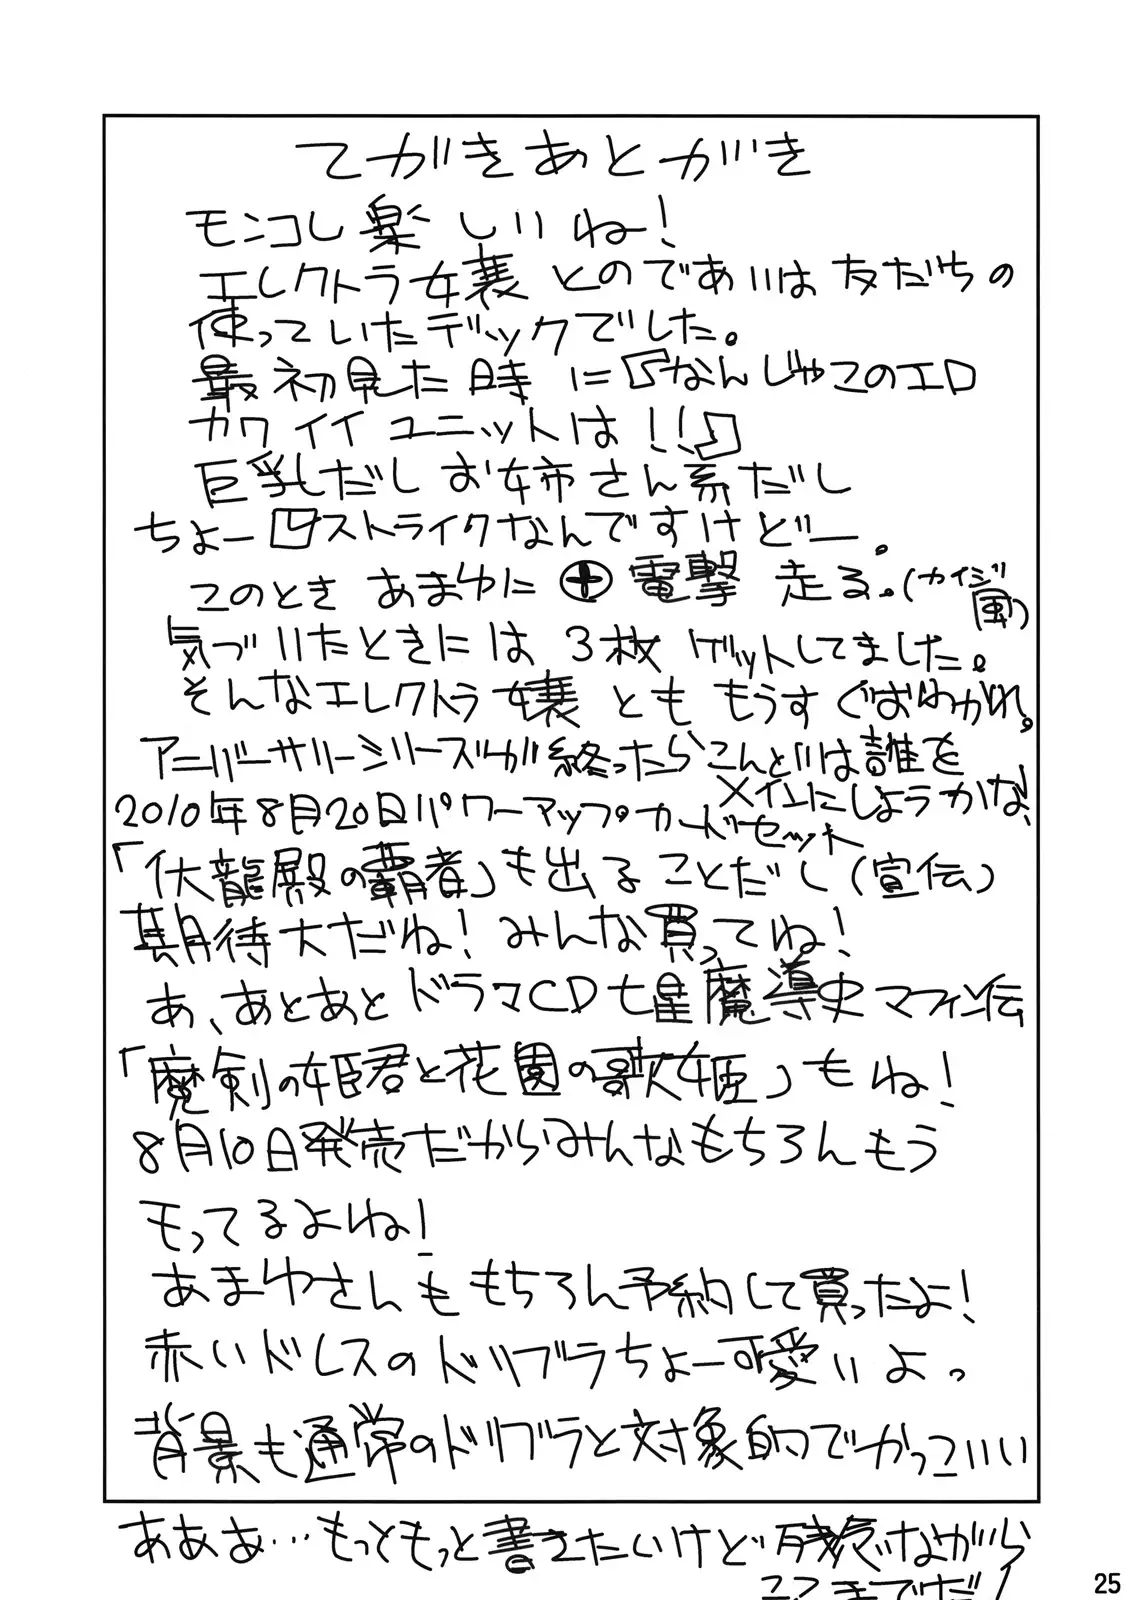 てがきあとがき
モンコレ楽しいね!
エレクトラ嬢とのであいは友だちの
使っていたデックでした。
最初見た時に『なんじゃこのエロ
カワイイユニットは!!』
巨乳だしお姉さん系だし
ちょーストライクなんですけどー。
このときあまゆに電撃走る。(カイジ風)
気づいたときには3枚ゲットしてました。
そんなエレクトラ嬢とももうすぐおわかれ。
アニバーサリーシリーズが終ったらこんどは誰を
メインにしようかな!
2010年8月20日パワーアップカードセット
「伏龍殿の覇者」も出ることだし(宣伝)
期待大だね!みんな買ってね!
あ、あとあとドラマCD七星魔導史マフィン伝
「魔剣の姫君と花園の歌姫」もね!
8月10日発売だからみんなもちろんもう
モってるよね!
あまゆさんももちろん予約して買ったよ!
赤いドレスのドリブラちょー可愛いよっ
背景も通常のドリブラと対象的でかっこいい
あああ…もっともっと書きたいけど残念ながら
ここまでだ!
25